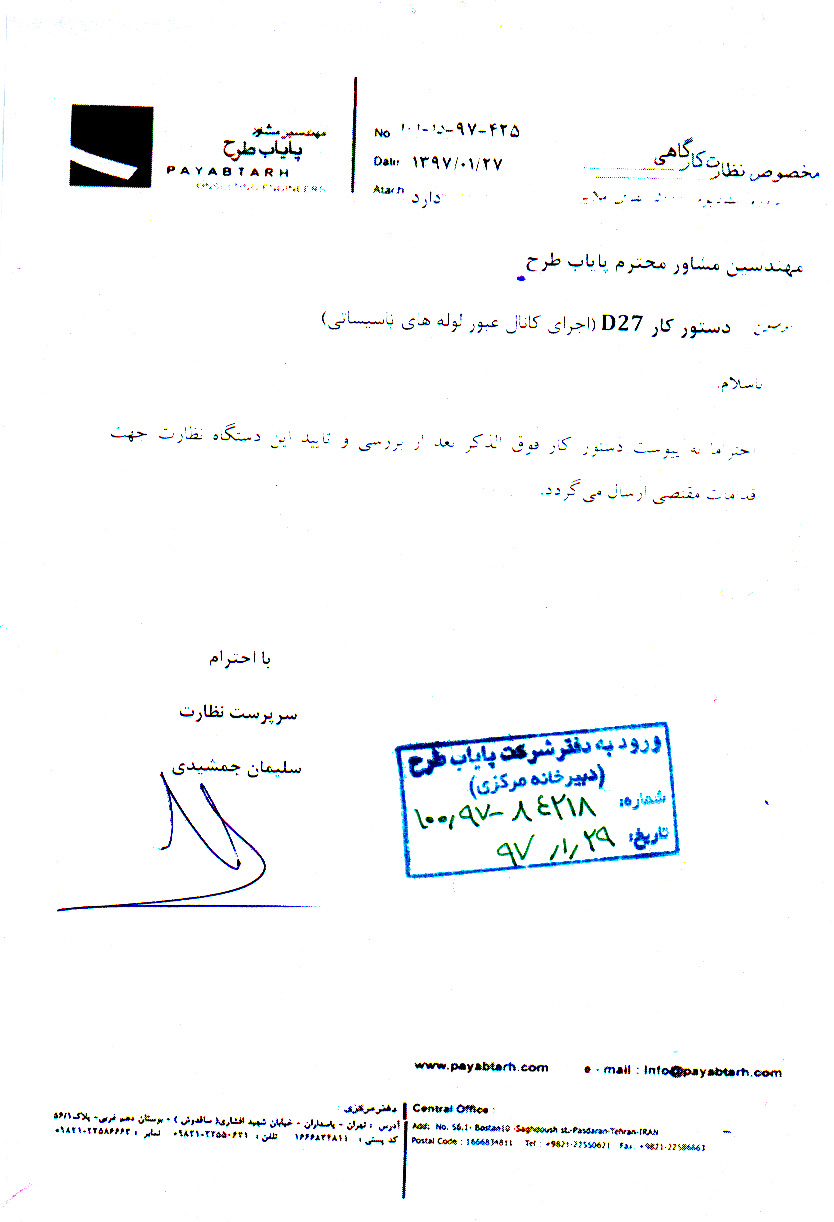 مهندسین مشاور
پایاب طرح
PAYABTARH
CONSULTING ENGINEERS
No ۱۰۱-۱۵-۹۷-۴۲۵
Date ۱۳۹۷/۰۱/۲۷
Atach دارد
مخصوص نظارت کارگاهی
مهندسین مشاور محترم پایاب طرح
دستور کار D27 (اجرای کانال عبور لوله های تاسیساتی)
باسلام.
احتراما به پیوست دستور کار فوق الذکر بعد از بررسی و تایید این دستگاه نظارت جهت
اقدامات مقتضی ارسال می گردد.
با احترام
سرپرست نظارت
سلیمان جمشیدی
ورود به دفتر شرکت پایاب طرح
(دبیرخانه مرکزی)
شماره: ۱۰۰,۹۷-۸۴۲۱۸
تاریخ: ۹۷,۱,۲۹
www.payabtarh.com e - mail : Info@payabtarh.com
دفتر مرکزی :
آدرس : تهران - پاسداران - خیابان شهید افشاری( ساقدوش ) - بوستان دهم غربی- پلاک ۵۶/۱
کد پستی : ۱۶۶۶۸۳۴۸۱۱ تلفن : ۰۹۸۲۱-۲۲۵۵۰۶۲۱ نمابر : ۰۹۸۲۱-۲۲۵۸۶۶۶۳
Central Office :
Add: No. 56.1- Bostan10 -Saghdoush st.-Pasdaran-Tehran-IRAN
Postal Code : 1666834811 Tel : +9821-22550621 Fax : +9821-22586663